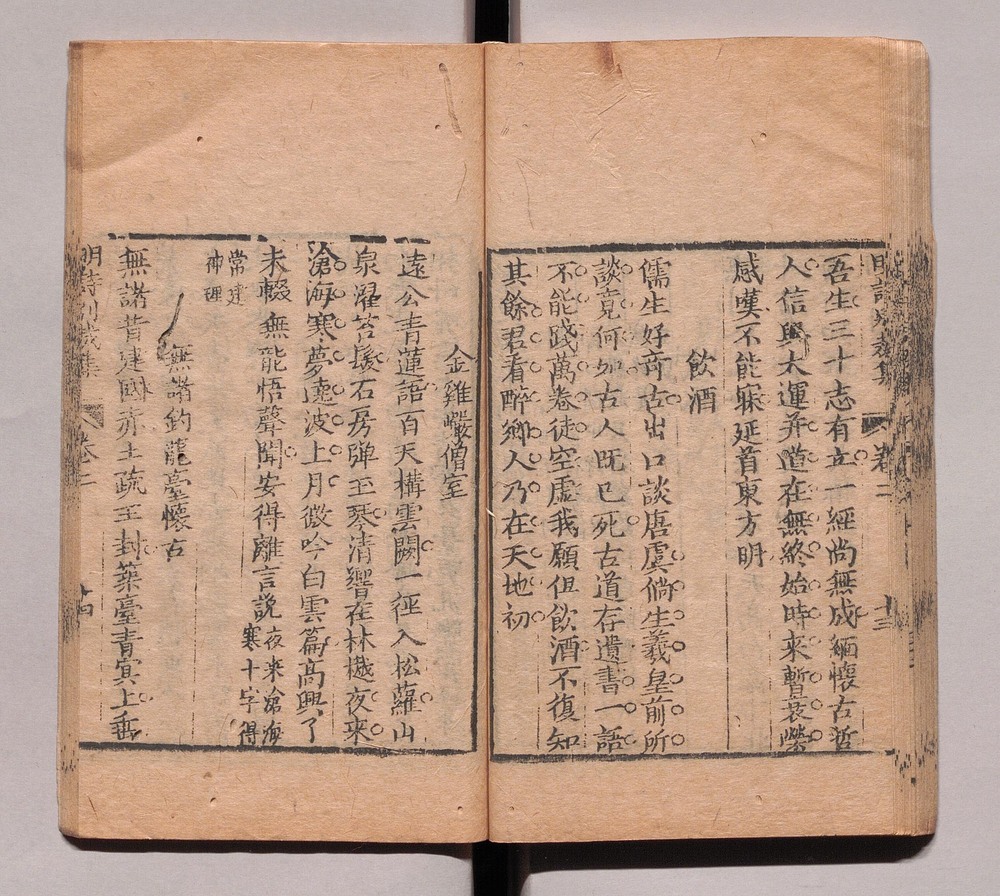 明詩別裁集 卷二 十三
吾生三十志有立一經尚無成緬懷古哲
人信與大運并道在無終始時來暫衰榮
感嘆不能寐延首東方明
飲酒
儒生好竒古出口談唐虞倘生羲皇前所
談竟何如古人既已死古道存遺書一語
不能踐萬卷徒空虛我願但飲酒不復知
其餘君看醉鄉人乃在天地初
金雞巖僧室
遠公青蓮語百天構雲闕一徑入松蘿山
泉濯苔石房弹玉琴清響在林樾夜來
滄海寒夢遶波上月微吟白雲篇高興了
未輟無能悟聲聞安得離言說夜來滄海
寒十字得
常建
神理
無諸釣龍臺懷古
無諸昔建國赤土疏王封築臺青冥上垂
明詩別裁集 卷二 十四